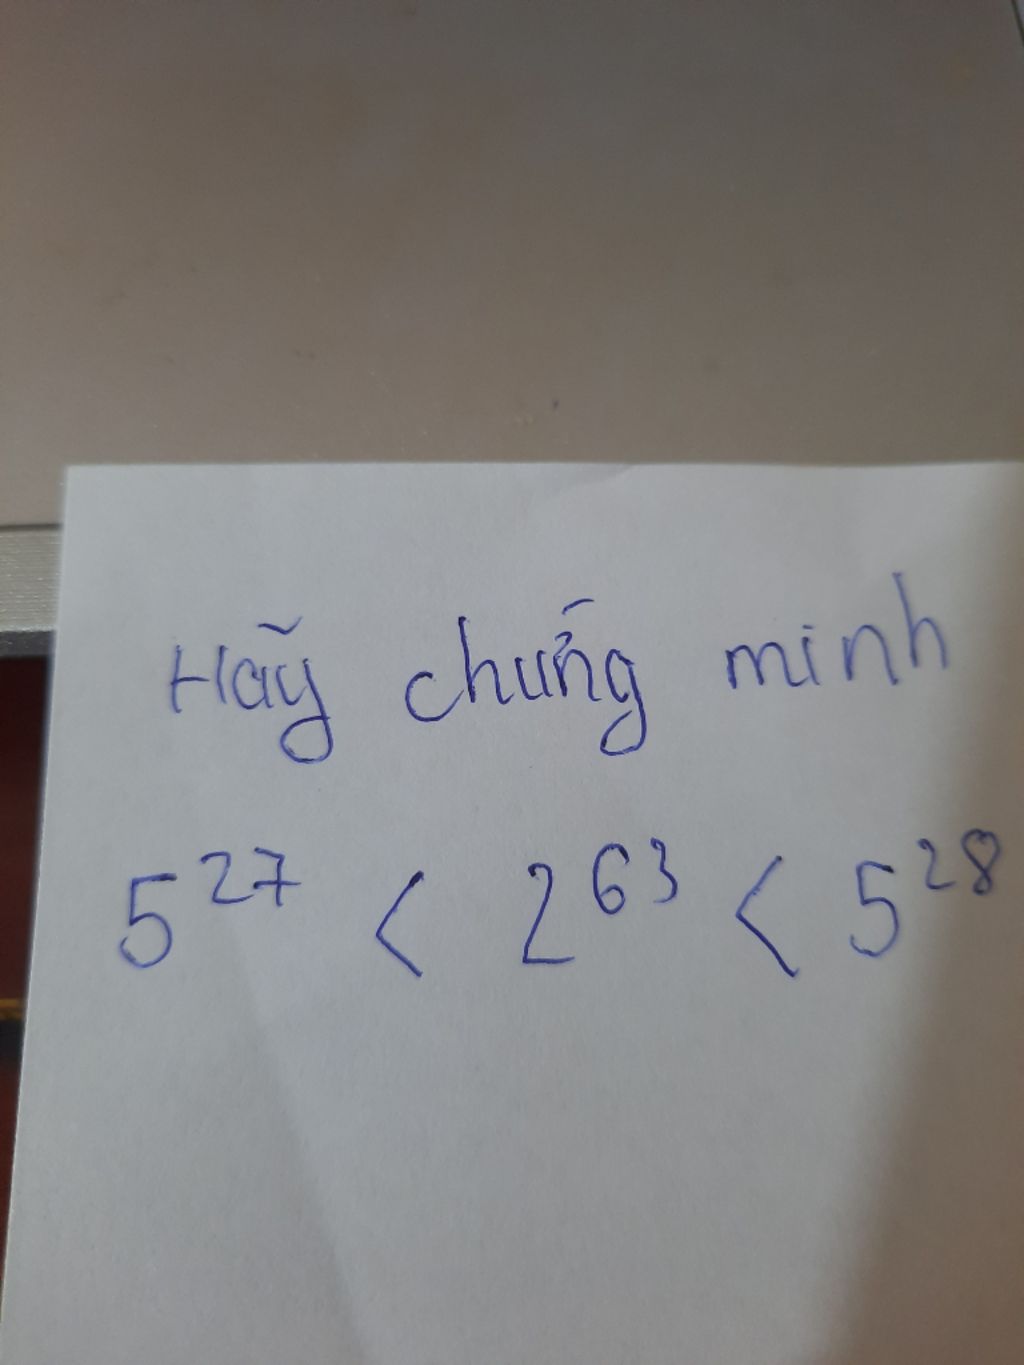 Hãy chứng minh
5²⁷ < 2⁶³ < 5²⁸